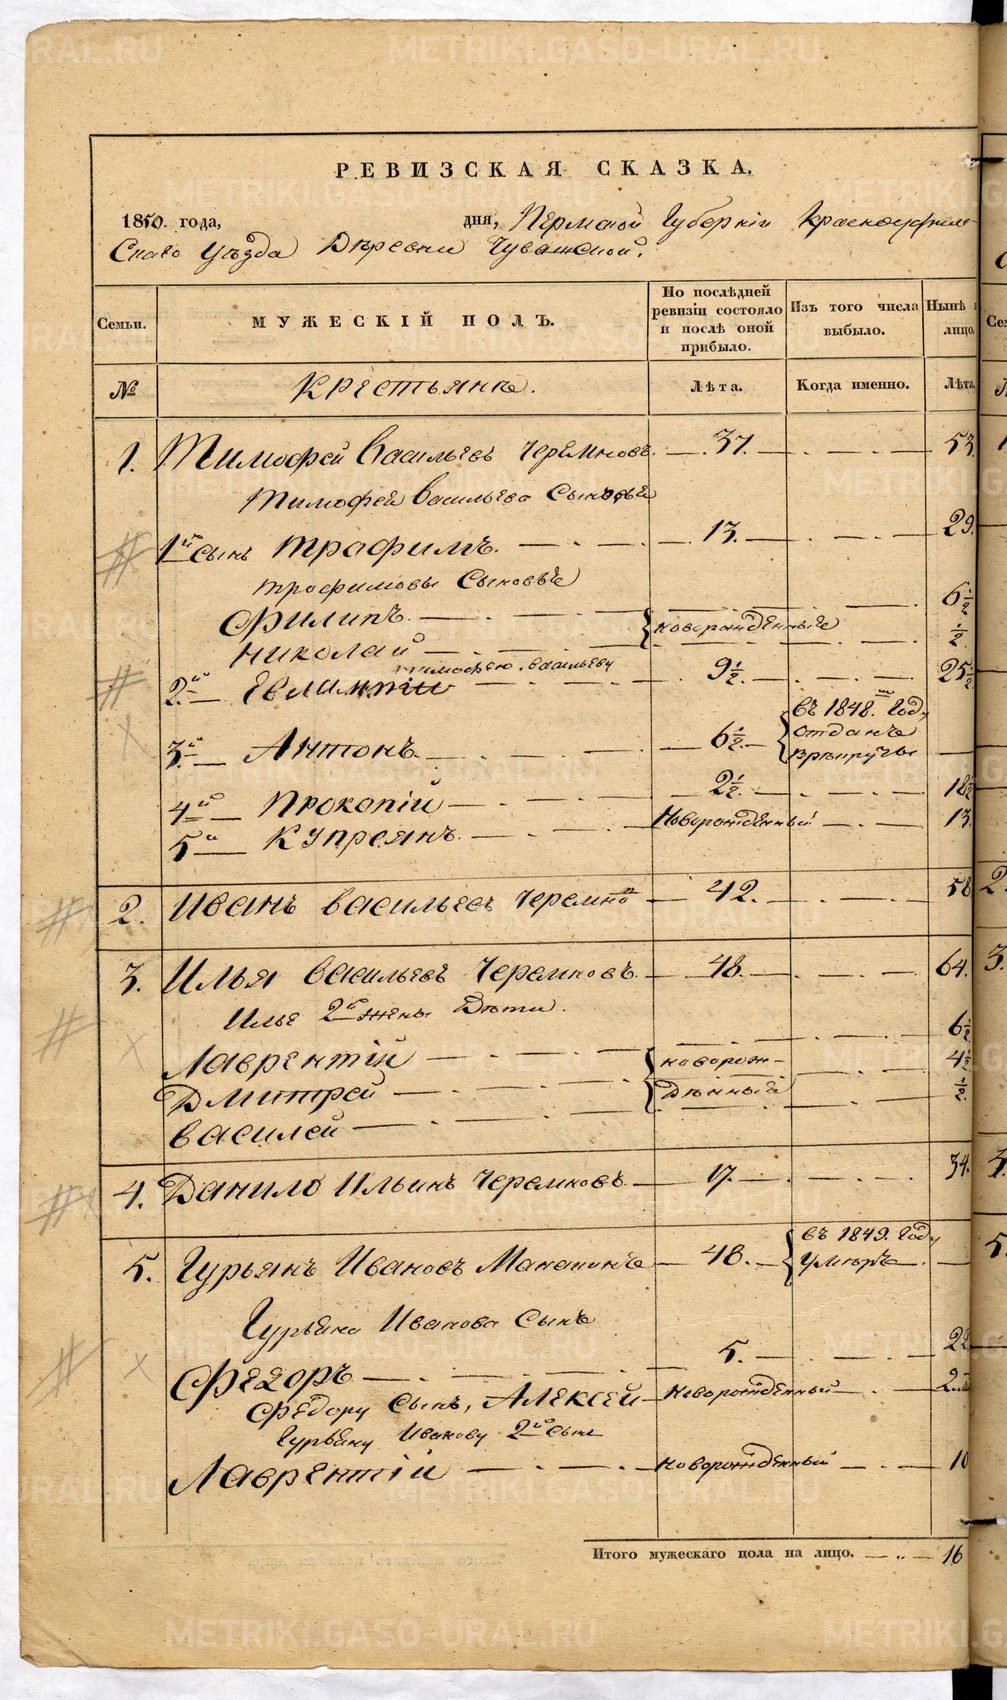 METRIKI.GASO-URAL.RU
РЕВИЗСКАЯ СКАЗКА.
1850. года, дня, Пермской Губерніи Красноуфим
скаго Уѣзда Деревни Чувашской.
Семьи. МУЖЕСКІЙ ПОЛЪ. По послѣдней ревизіи состояло и послѣ оной прибыло. Изъ того числа выбыло. Нынѣ лицо.
№ Крестьяне. Лѣта. Когда именно. Лѣта
1. Тимофей Васильевъ Черемновъ. 37. 53.
Тимофея Васильева Сыновья
1й сынъ Трафимъ. 13. 29.
Трофимовы Сыновье
Филипъ. новорожденные 6½
Николай ½
Тимофею Васильеву
2й Евлампій 9½. 25½
3й Антонъ. 6½. въ 1848. Году отданъ в рекруты
4й Прокопій 2½. 18½
5й Купреянъ. Новорожденный 13.
2. Иванъ Васильевъ Черемно 42. 58
3. Илья Васильевъ Черемновъ. 48. 64.
Илье 2й жены Дѣти.
Лаврентій новорож- 6½
Дмитрей денные 4½
Василей ½.
4. Данило Ильинъ Черемновъ. 17. 34.
5. Гурьянъ Ивановъ 48. въ 1849. Году умеръ
Гурьяна Иванова Сынъ
Федоръ 5. 22
Федору Сынъ, Алексей Новорожденный 2
Гурьяну Иванову 2й Сынъ
Лаврентій Новорожденный 10
Итого мужескаго пола на лицо. 16